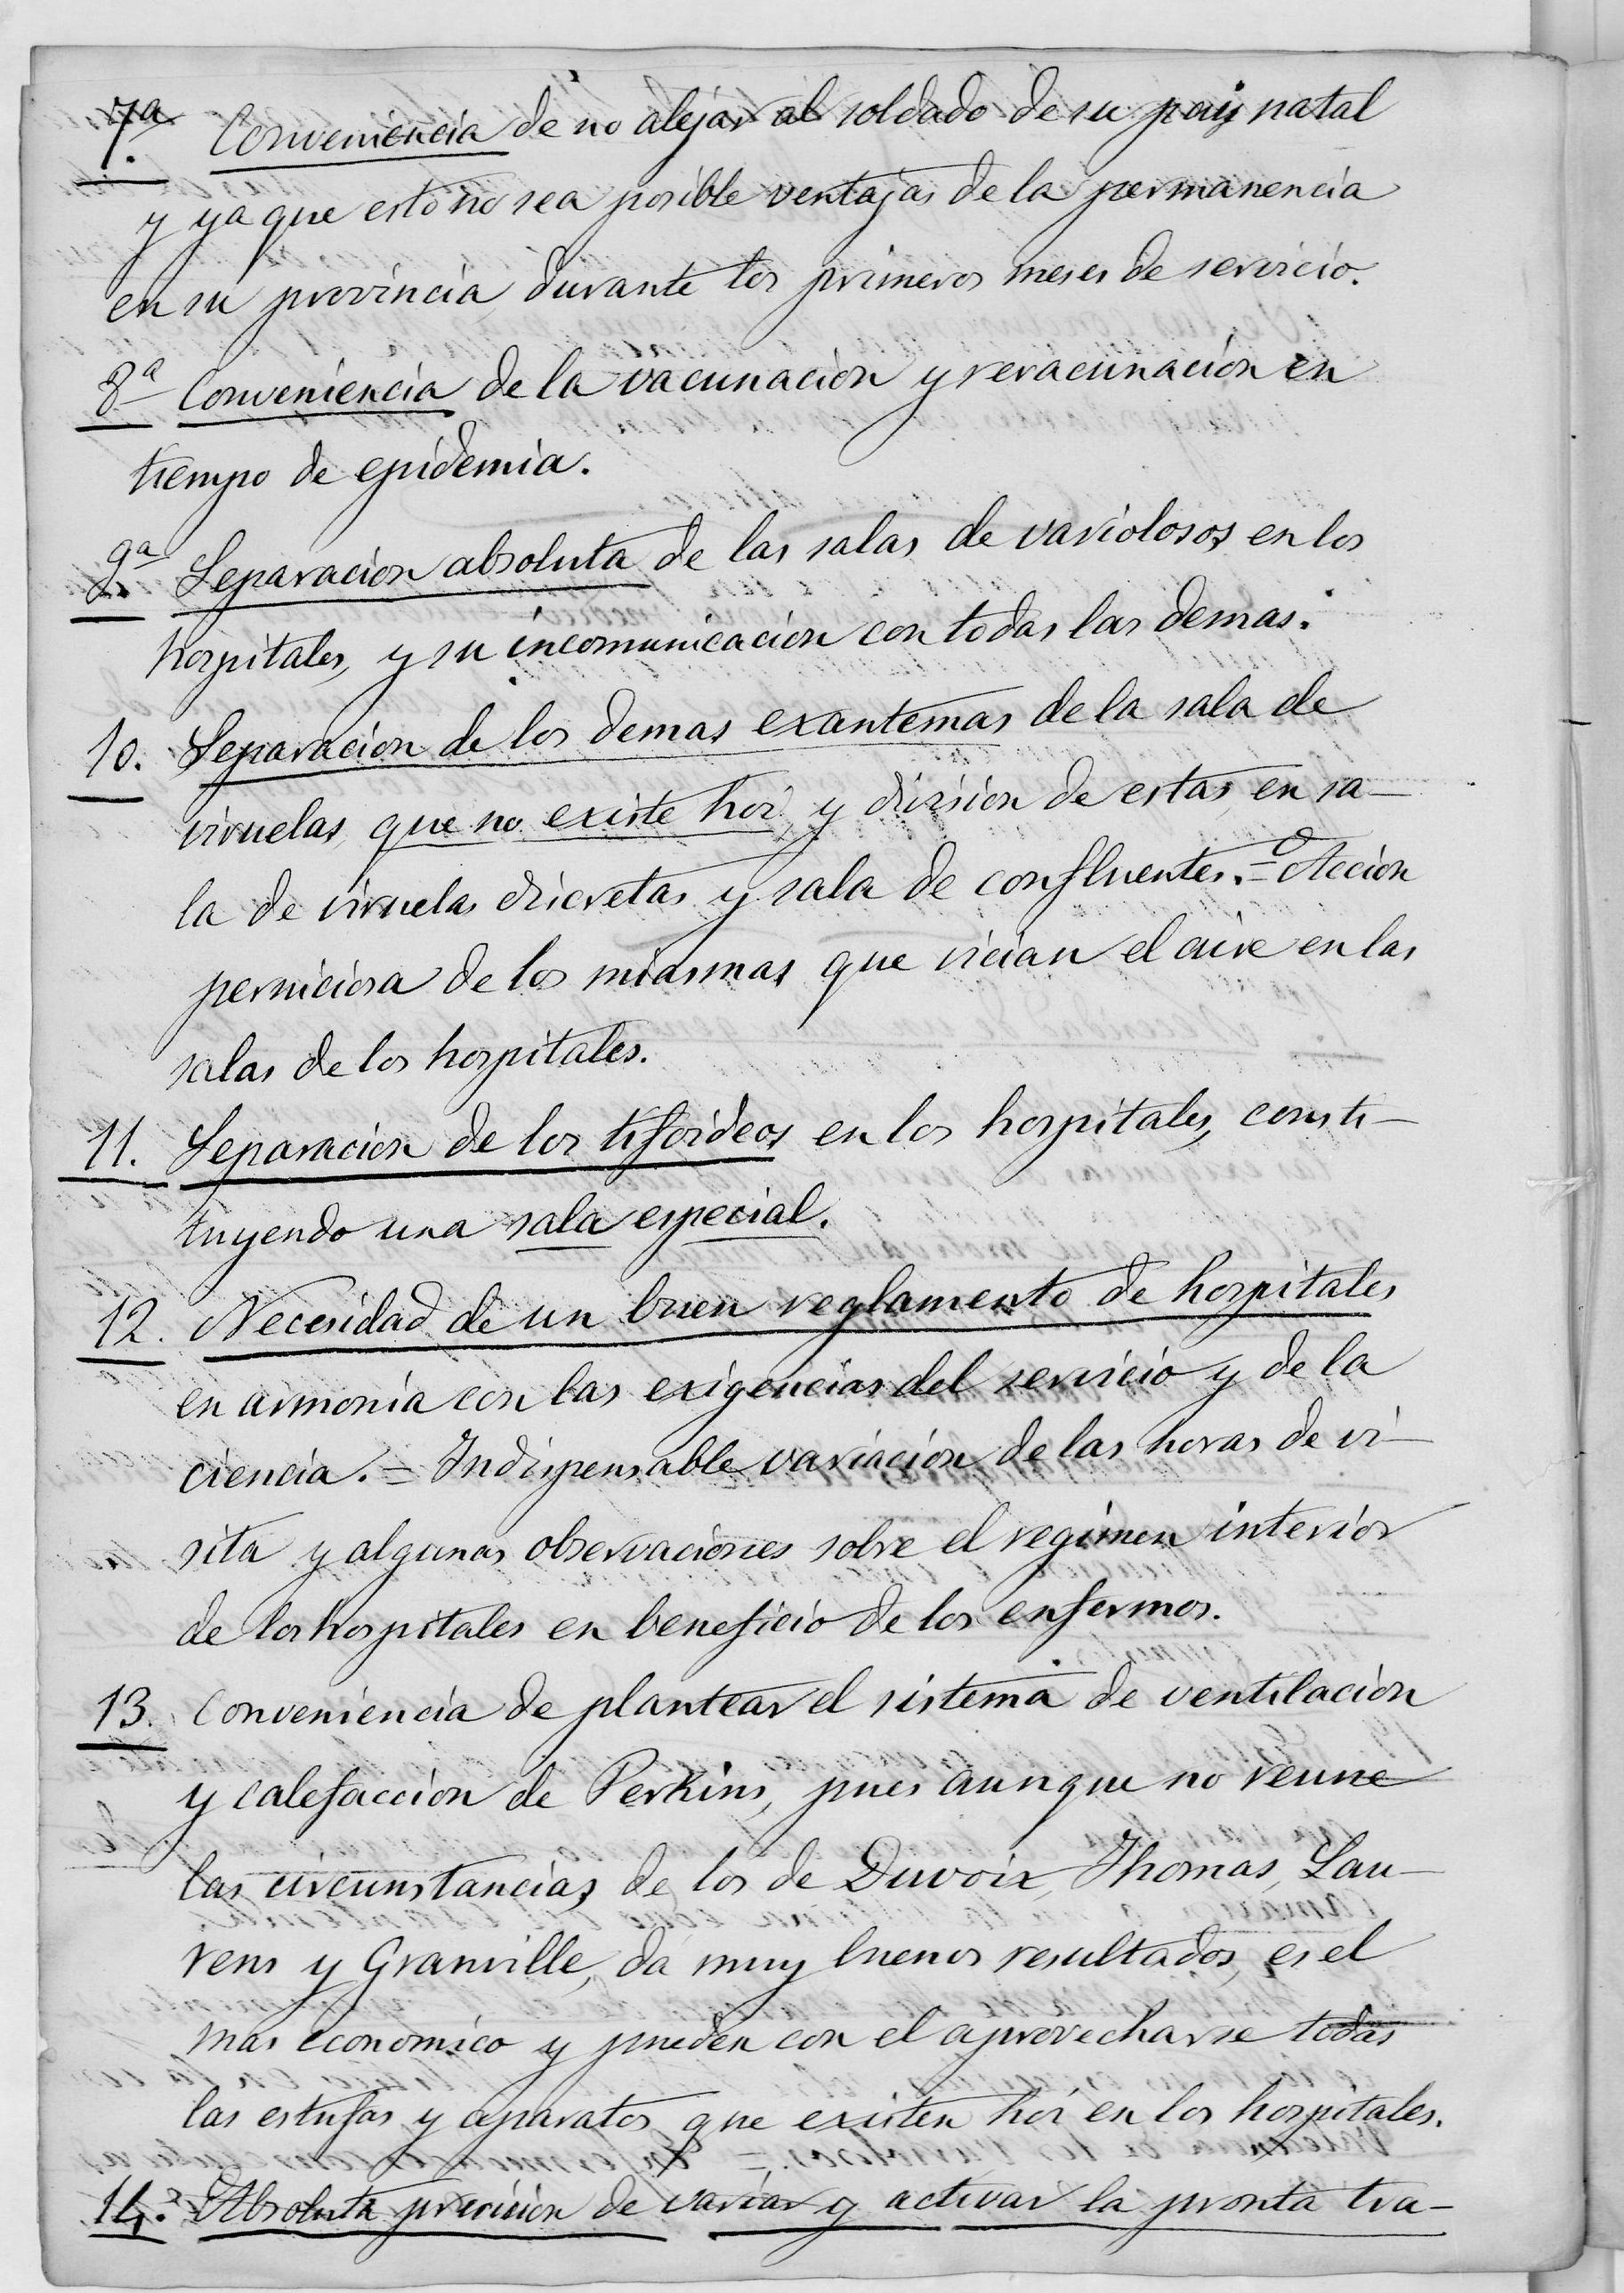 7ª. Conveniencia de no alejar al soldado de su pais natal
y ya que esto no sea posible ventajas de la permanencia
en su provincia, durante los primeros meses de servicio.
8ª Conveniencia de la vacunacion y revacunacion en
tiempo de epidemia.
9ª. Separacion absoluta de las salas de variolosos en los
hospitales, y su incomunicacion con todas las demas.
10. Separacion de los demas exantemas de la sala de
viruelas, que no existe hoi, y division de estas en sa-
la de viruelas discretas y sala de confluentes.= Accion
perniciosa de los miasmas que vician el aire en las
salas de los hospitales.
11. Separacion de los tifoideos en los hospitales, consti-
tuyendo una sala especial.
12. Necesidad de un buen reglamento de hospitales
en armonia con las exigencias del servicio y de la
ciencia.= Indispensable variacion de las horas de vi-
sita y algunas observaciones sobre el regimen interior
de los hospitales en beneficio de los enfermos.
13. Conveniencia de plantear el sistema de ventilacion
y calefaccion de Perkins, pues aunque no reune
las circunstancias de los de Duvoir, Thomas, Lau-
rens y Granville, da muy buenos resultados, es el
mas economico y pueden con el aprovecharse todas
las estufas y aparatos que existen hoi en los hospitales.
14. Absoluta precision de variar y activar la pronta tra-